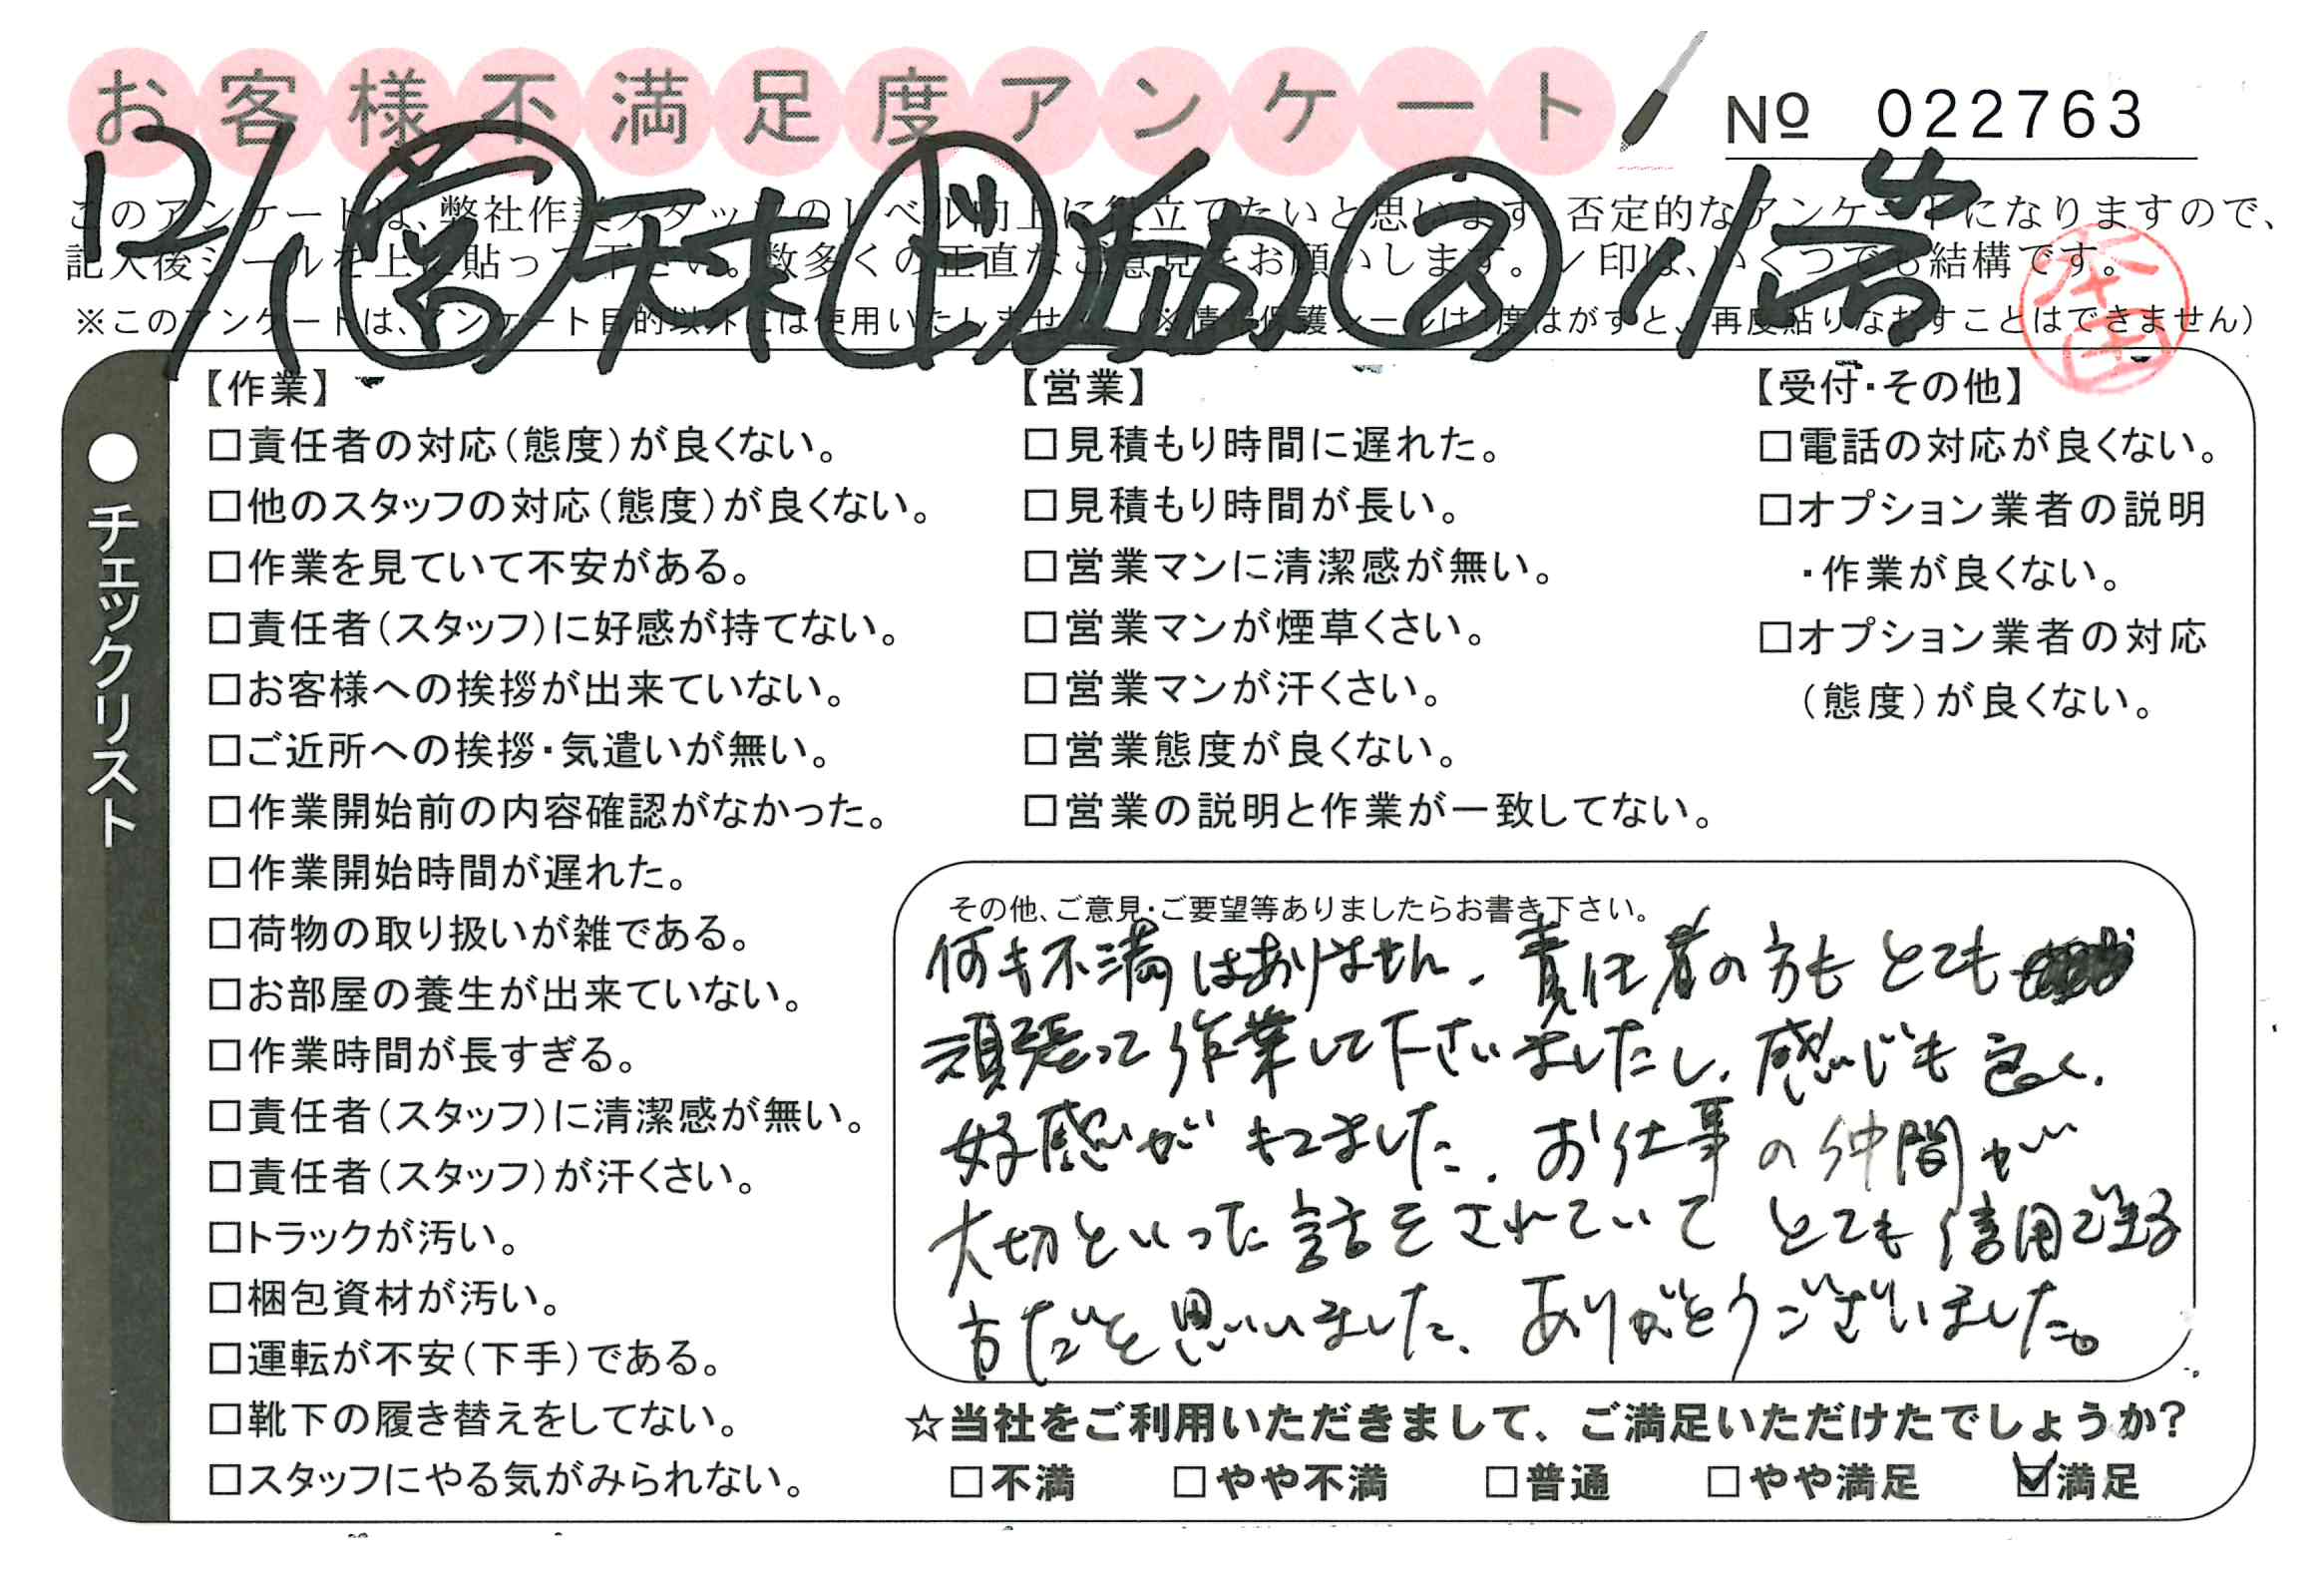 お客様不満足度アンケート
№ 022763
12/1 営 天木 ド ス 小
このアンケートは、弊社作業スタッフのレベル向上に役立てたいと思います。否定的なアンケートになりますので、
記入後シールを上に貼って下さい。数多くの正直なご意見をお願いします。✓印は、いくつでも結構です。
※このアンケートは、アンケート目的以外には使用いたしません。(※情報保護シールは1度はがすと、再度貼りなおすことはできません)
本田
●チェックリスト
【作業】
□責任者の対応(態度)が良くない。
□他のスタッフの対応(態度)が良くない。
□作業を見ていて不安がある。
□責任者(スタッフ)に好感が持てない。
□お客様への挨拶が出来ていない。
□ご近所への挨拶・気遣いが無い。
□作業開始前の内容確認がなかった。
□作業開始時間が遅れた。
□荷物の取り扱いが雑である。
□お部屋の養生が出来ていない。
□作業時間が長すぎる。
□責任者(スタッフ)に清潔感が無い。
□責任者(スタッフ)が汗くさい。
□トラックが汚い。
□梱包資材が汚い。
□運転が不安(下手)である。
□靴下の履き替えをしてない。
□スタッフにやる気がみられない。
【営業】
□見積もり時間に遅れた。
□見積もり時間が長い。
□営業マンに清潔感が無い。
□営業マンが煙草くさい。
□営業マンが汗くさい。
□営業態度が良くない。
□営業の説明と作業が一致してない。
【受付・その他】
□電話の対応が良くない。
□オプション業者の説明
・作業が良くない。
□オプション業者の対応
(態度)が良くない。
その他、ご意見・ご要望等ありましたらお書き下さい。
何も不満はありません。責任者の方もとても
頑張って作業して下さいましたし、感じも良く、
好感がもてました。お仕事の仲間が
大切といった話をされていてとても信用できる
方だと思いました。ありがとうございました。
☆当社をご利用いただきまして、ご満足いただけたでしょうか?
□不満 □やや不満 □普通 □やや満足 ☑満足